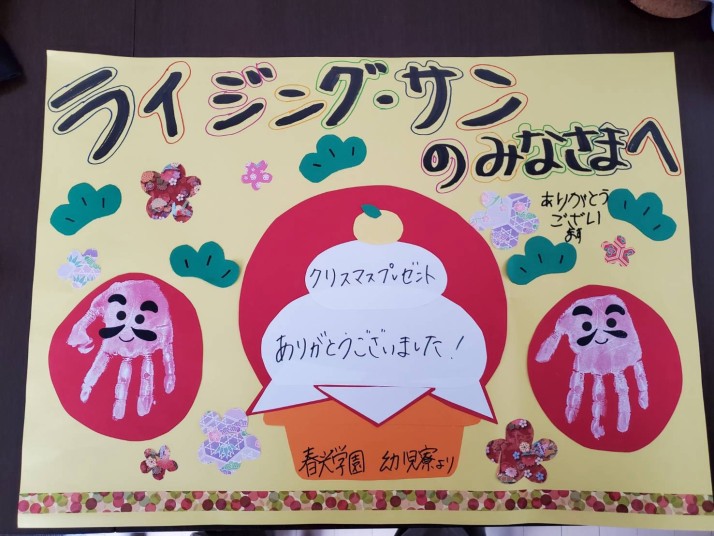 ライジング・サン
のみなさまへ
ありがとう
ござい
ます
クリスマスプレゼント
ありがとうございました!
春光学園 幼児寮より